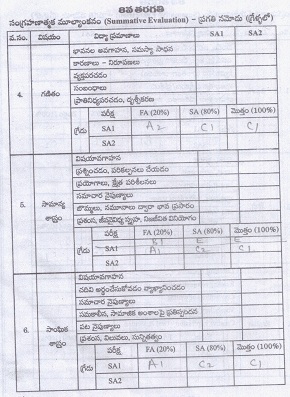 8వ తరగతి
సంగ్రహణాత్మక మూల్యాంకనం (Summative Evaluation) - ప్రగతి నమోదు (గ్రేళ్ళలో)
వ.సం. విషయం విద్యా ప్రమాణాలు SA1 SA2
భావనల అవగాహన, సమస్యా సాధన
కారణాలు - నిరూపణలు
వ్యక్తపరచడం
సంబంధాలు
ప్రాతినిధ్యపరచడం, దృశ్యీకరణ
4. గణితం
పరీక్ష FA (20%) SA (80%) మొత్తం (100%)
గ్రేడు SA1 A2 C1 C1
SA2
విషయావగాహన
ప్రశ్నించడం, పరికల్పనలు చేయడం
ప్రయోగాలు, క్షేత్ర పరిశీలనలు
సమాచార నైపుణ్యాలు
5. సామాన్య శాస్త్రం
బొమ్మలు, నమూనాల ద్వారా భావ ప్రసారం
ప్రశంస, జీవవైవిధ్య స్పృహ, నిజజీవిత వినియోగం
పరీక్ష FA (20%) SA (80%) మొత్తం (100%)
గ్రేడు SA1 A1 C2 C1
SA2
విషయావగాహన
చదివి అర్థంచేసుకోవడం వ్యాఖ్యానించడం
సమాచార నైపుణ్యాలు
సమకాలీన, సామాజిక అంశాలపై ప్రతిస్పందన
6. సాంఘిక శాస్త్రం
పట నైపుణ్యాలు
ప్రశంస, విలువలు, సున్నితత్వం
పరీక్ష FA (20%) SA (80%) మొత్తం (100%)
గ్రేడు SA1 A1 C2 C1
SA2